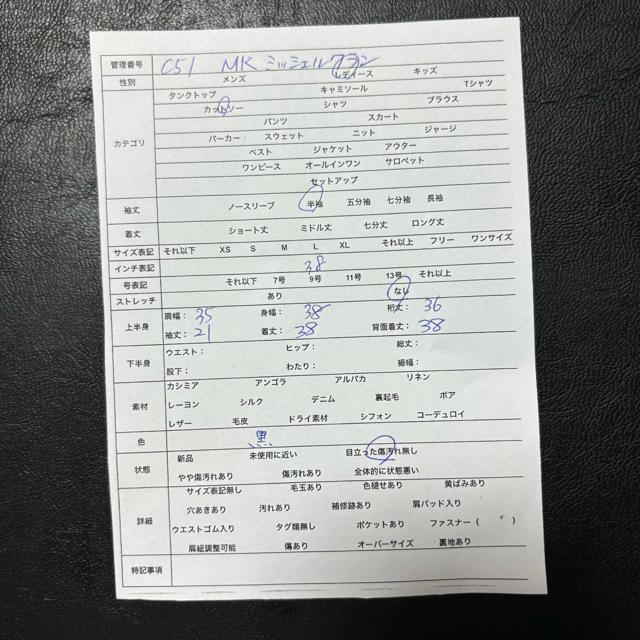 管理番号 C51 MK ミッシェルクラン
性別 メンズ レディース キッズ
カテゴリ タンクトップ キャミソール Tシャツ
カットソー シャツ ブラウス
パンツ スカート
パーカー スウェット ニット ジャージ
ベスト ジャケット アウター
ワンピース オールインワン サロペット
セットアップ
袖丈 ノースリーブ 半袖 五分袖 七分袖 長袖
着丈 ショート丈 ミドル丈 七分丈 ロング丈
サイズ表記 それ以下 XS S M L XL それ以上 フリー ワンサイズ
インチ表記 38
号表記 それ以下 7号 9号 11号 13号 それ以上
ストレッチ あり なし
上半身 肩幅: 35 身幅: 38 裄丈: 36
袖丈: 21 着丈: 38 背面着丈: 38
下半身 ウエスト: ヒップ: 総丈:
股下: わたり: 裾幅:
素材 カシミア アンゴラ アルパカ リネン
レーヨン シルク デニム 裏起毛 ボア
レザー 毛皮 ドライ素材 シフォン コーデュロイ
色 黒
状態 新品 未使用に近い 目立った傷汚れ無し
やや傷汚れあり 傷汚れあり 全体的に状態悪い
詳細 サイズ表記無し 毛玉あり 色褪せあり 黄ばみあり
穴あきあり 汚れあり 補修跡あり 肩パッド入り
ウエストゴム入り タグ類無し ポケットあり ファスナー ( )
肩紐調整可能 傷あり オーバーサイズ 裏地あり
特記事項